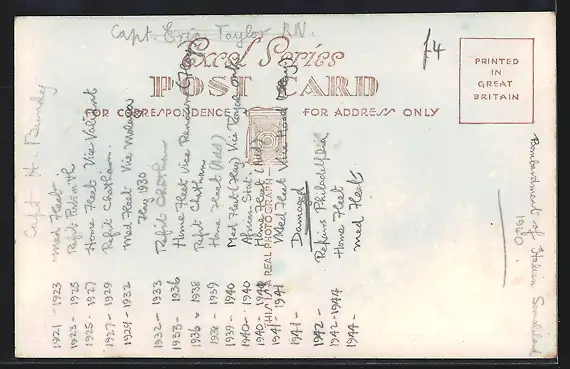 Capt. Eric Taylor RN.
£4
Excel Series
POST CARD
FOR CORRESPONDENCE
FOR ADDRESS ONLY
PRINTED
IN
GREAT
BRITAIN
THIS IS A REAL PHOTOGRAPH
Capt H.
1921 - 1923 Med Fleet.
1923 - 1925 Refit
1925 - 1927 Home Fleet Vice Valiant
1927 - 1929 Refit Chatham.
1929 - 1932 Med Fleet Vice Malaya
Flag 1930
1932 - 1933 Refit Chatham
1933 - 1936 Home Fleet Vice
1936 - 1938 Refit Chatham
1938 - 1939 Home Fleet
1939 - 1940 Med Fleet (Flag) Vice
1940 - 1940 African Stat.
1940 - 1941 Home Fleet
1941 - 1941 Med Fleet Vice Hood
1941 - Damaged
1942 - Repairs Philadelphia
1942-1944 Home Fleet
1944 - Med Fleet
Bombardment of Italian Somaliland
1940.